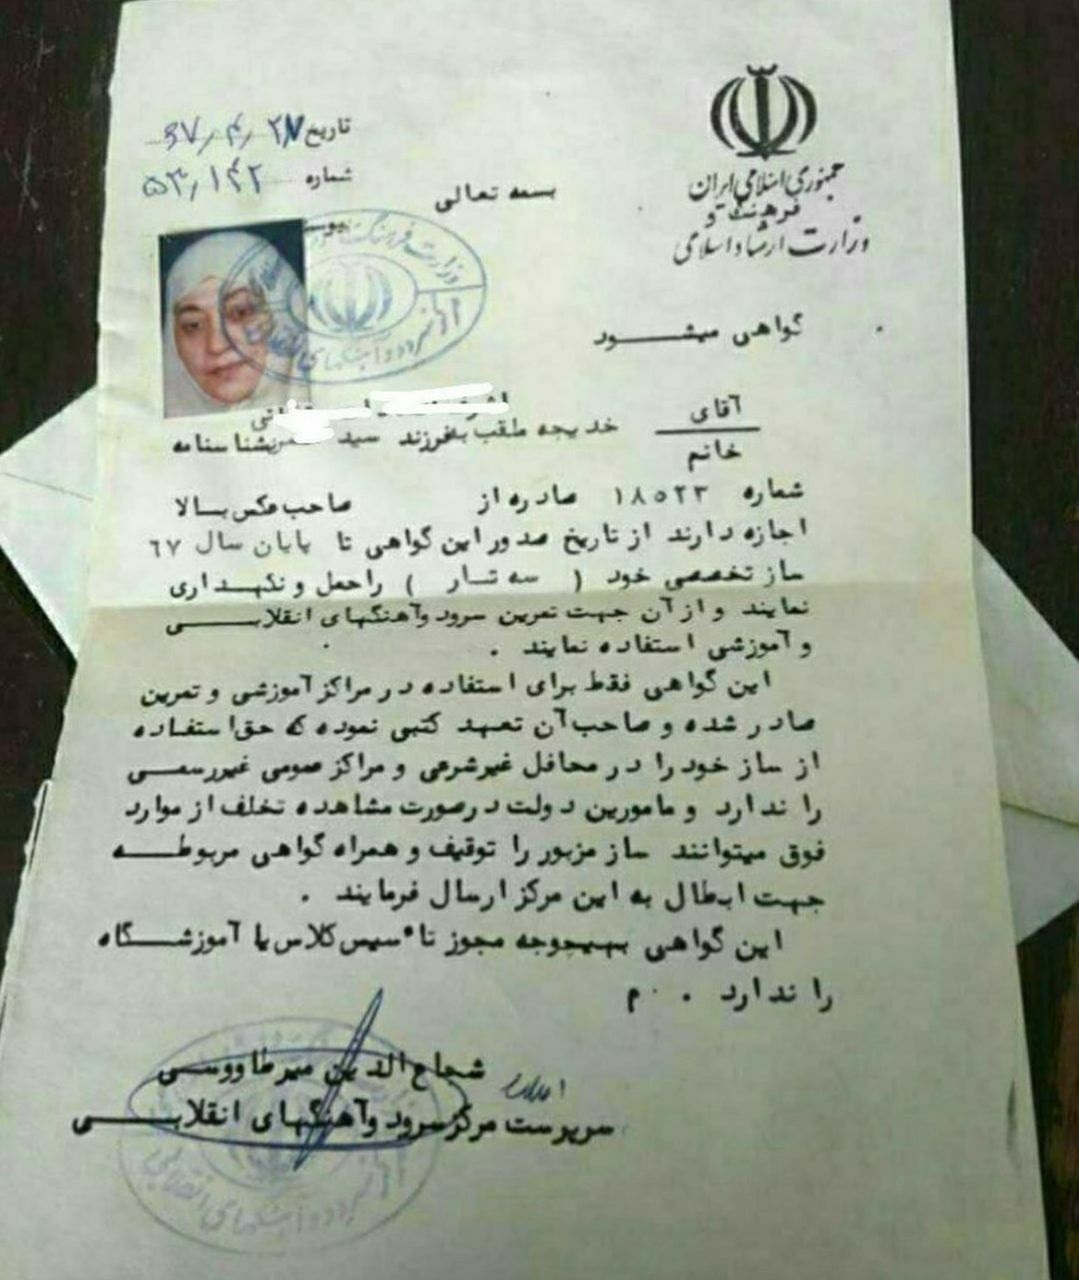 جمهوری اسلامی ایران
وزارت فرهنگ و ارشاد اسلامی
تاریخ ۶۷٫۴٫۲۸
شماره ۵۳٫۱۴۲
بسمه تعالی
وزارت فرهنگ
سرود و آهنگهای
گواهی میشود
آقای
خانم
خدیجه ملقب به فرزند سید شناسنامه
شماره ۱۸۵۲۳ صادره از صاحب عکس بالا
اجازه دارند از تاریخ صدور این گواهی تا پایان سال ۶۷
ساز تخصصی خود ( سه تار ) را حمل و نگهداری
نمایند و از آن جهت تمرین سرود و آهنگهای انقلابی
و آموزشی استفاده نمایند .
این گواهی فقط برای استفاده در مراکز آموزشی و تمرین
صادر شده و صاحب آن تعهد کتبی نموده که حق استفاده
از ساز خود را در محافل غیرشرعی و مراکز عمومی غیررسمی
را ندارد و مامورین دولت درصورت مشاهده تخلف از موارد
فوق میتوانند ساز مزبور را توقیف و همراه گواهی مربوطه
جهت ابطال به این مرکز ارسال فرمایند .
این گواهی بهیچوجه مجوز تاسیس کلاس یا آموزشگاه
را ندارد . م
شجاع الدین میرطاووسی
سرپرست مرکز سرود و آهنگهای انقلابی
سرود و آهنگهای انقلابی